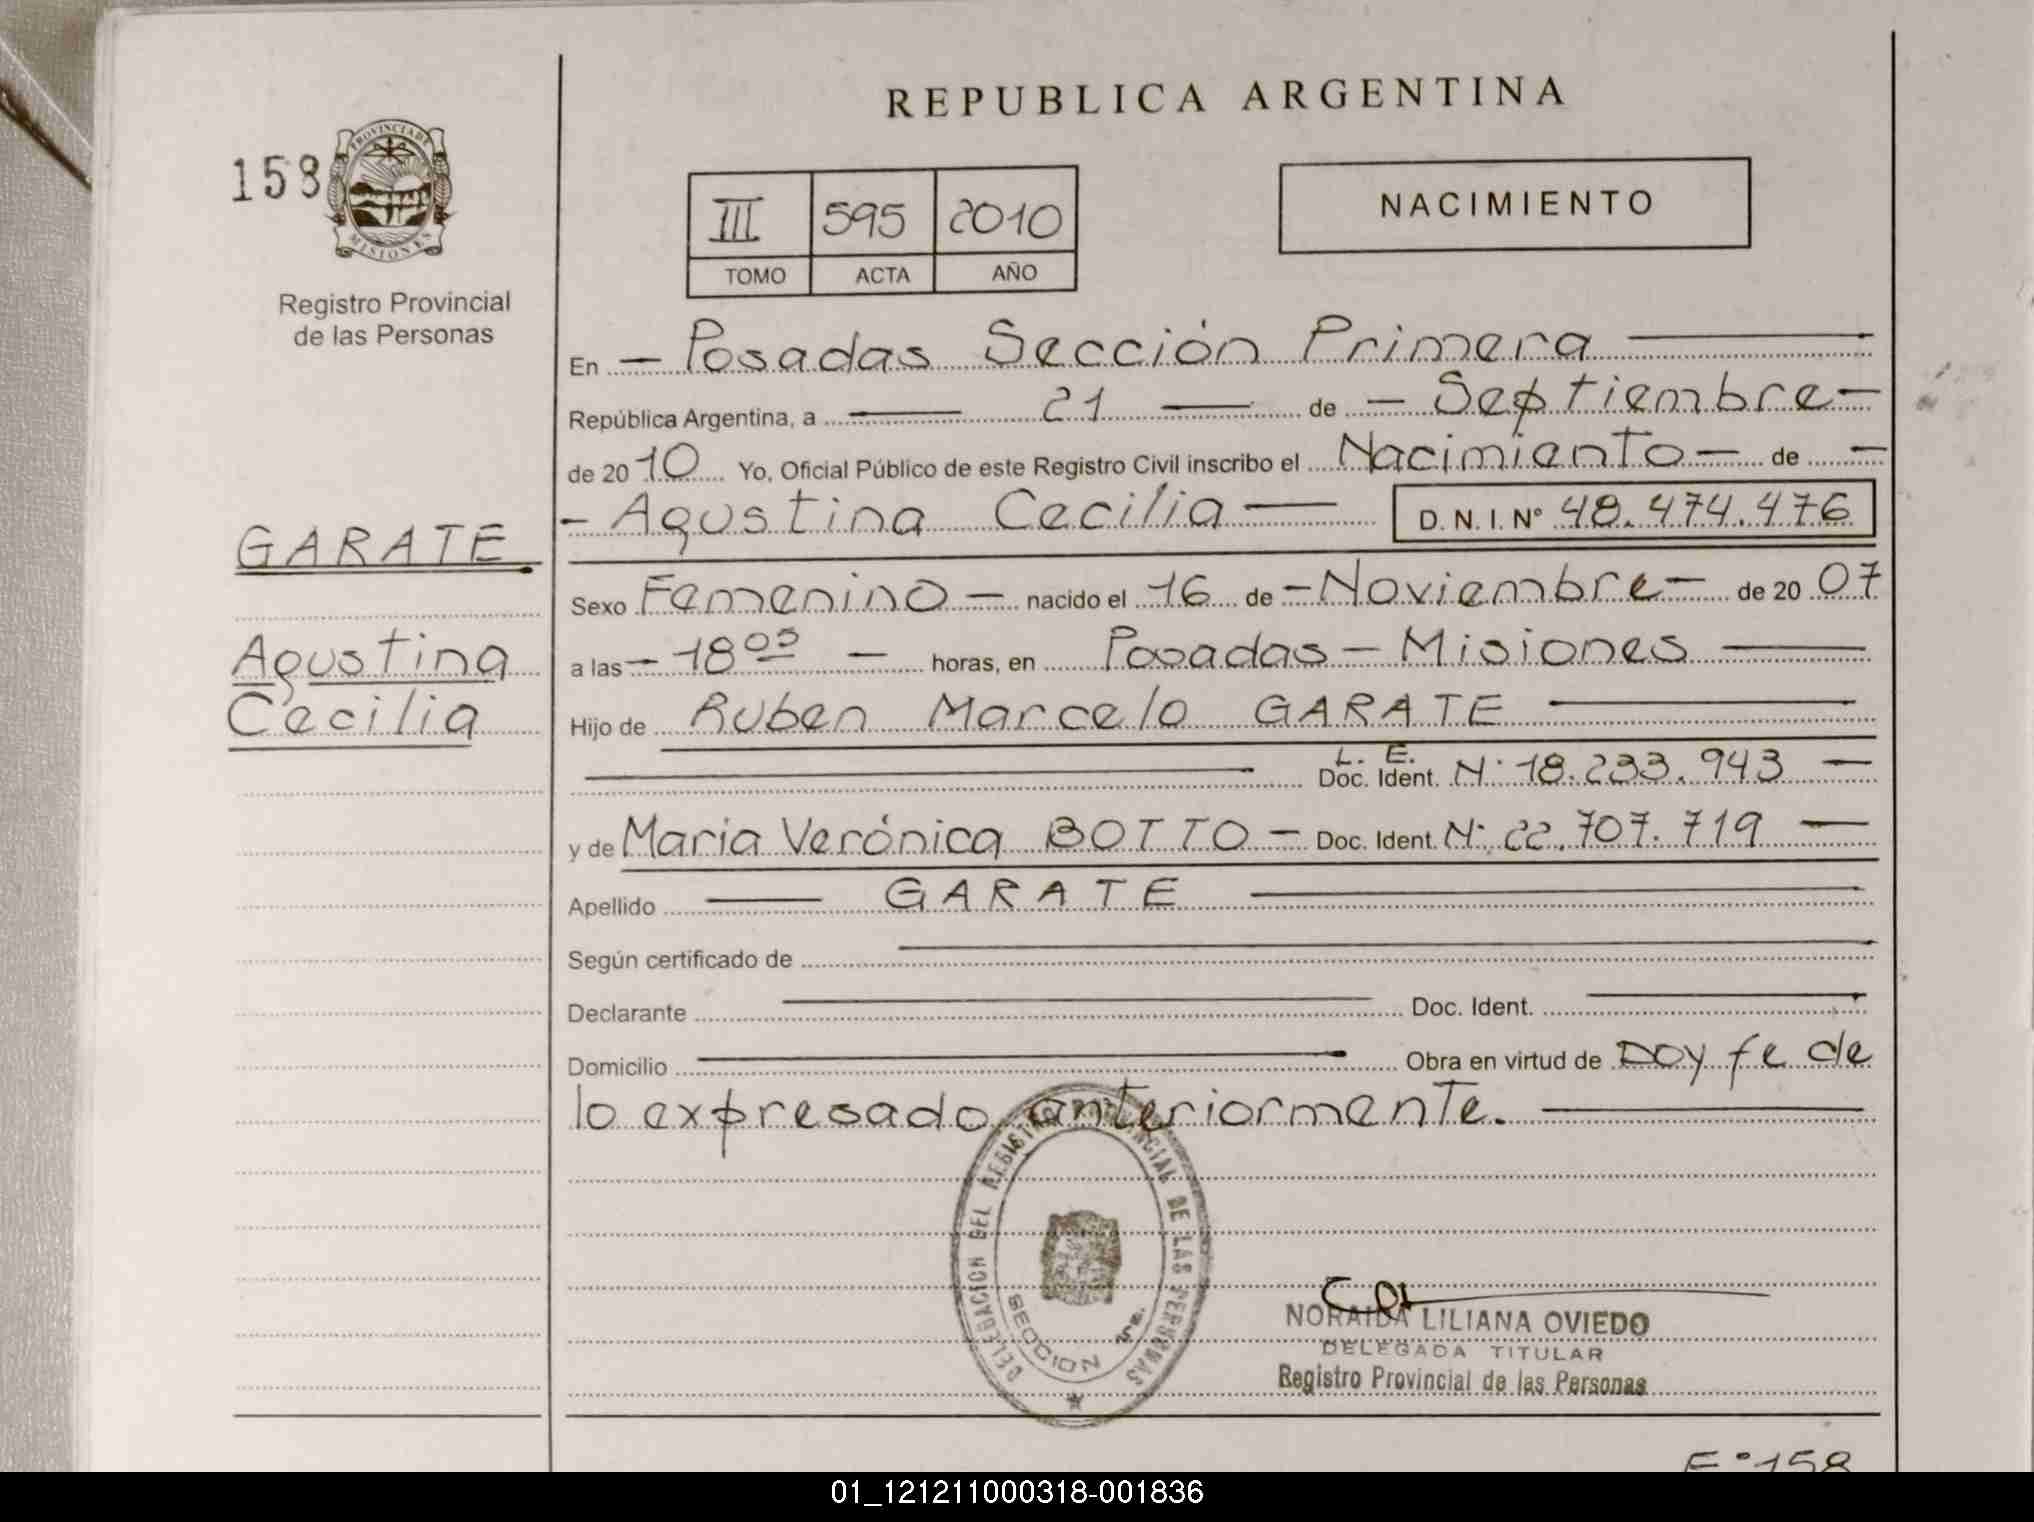 REPUBLICA ARGENTINA
158
PROVINCIA DE
MISIONES
Registro Provincial
de las Personas
III 595 2010
TOMO ACTA AÑO
NACIMIENTO
En — Posadas Sección Primera —
República Argentina, a — 21 — de — Septiembre —
de 20 10 Yo, Oficial Público de este Registro Civil inscribo el Nacimiento — de —
— Agustina Cecilia — D. N. I. Nº 48.474.476
GARATE
Agustina
Cecilia
Sexo Femenino — nacido el 16 de — Noviembre — de 20 07
a las — 18 05 — horas, en Posadas — Misiones —
Hijo de Ruben Marcelo GARATE —
— L. E.
Doc. Ident. Nº 18.233.943 —
y de Maria Verónica BOTTO — Doc. Ident. Nº 22.707.719 —
Apellido — GARATE —
Según certificado de —
Declarante — Doc. Ident. —
Domicilio — Obra en virtud de Doy fe de
lo expresado anteriormente. —
DELEGACION DEL REGISTRO PROVINCIAL DE LAS PERSONAS
SECCION 1ra.
NORAIDA LILIANA OVIEDO
DELEGADA TITULAR
Registro Provincial de las Personas
Fº 158
01_121211000318-001836